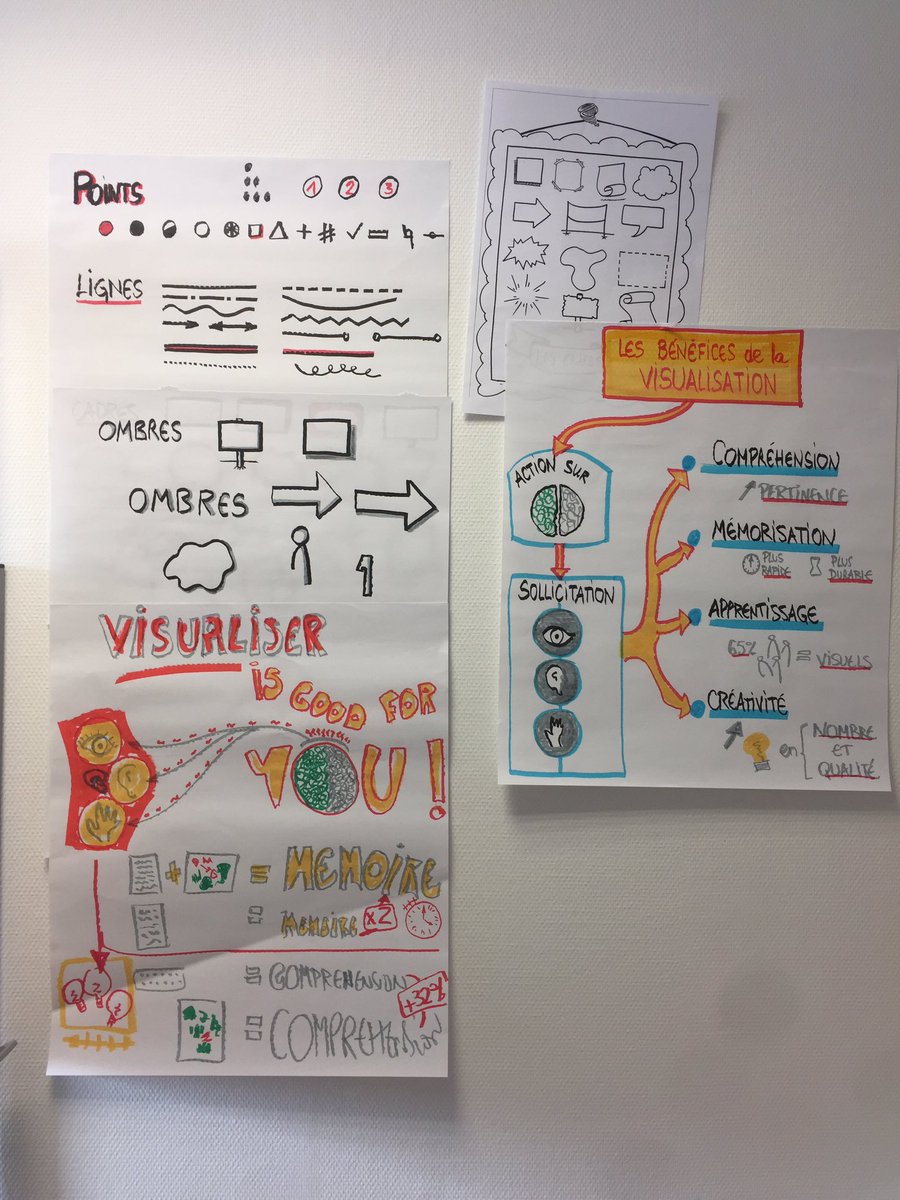 POINTS
1 2 3
LIGNES
CADRES
OMBRES
OMBRES
1
VISUALISER
IS GOOD FOR
YOU !
+ = MEMOIRE
= MEMOIRE x2
= COMPREHENSION
+32%
= COMPREHENSION
LES BÉNÉFICES de la
VISUALISATION
ACTION SUR
SOLLICITATION
COMPRÉHENSION
PERTINENCE
MÉMORISATION
PLUS RAPIDE
PLUS DURABLE
APPRENTISSAGE
65% = VISUELS
CRÉATIVITÉ
en NOMBRE
ET
QUALITÉ